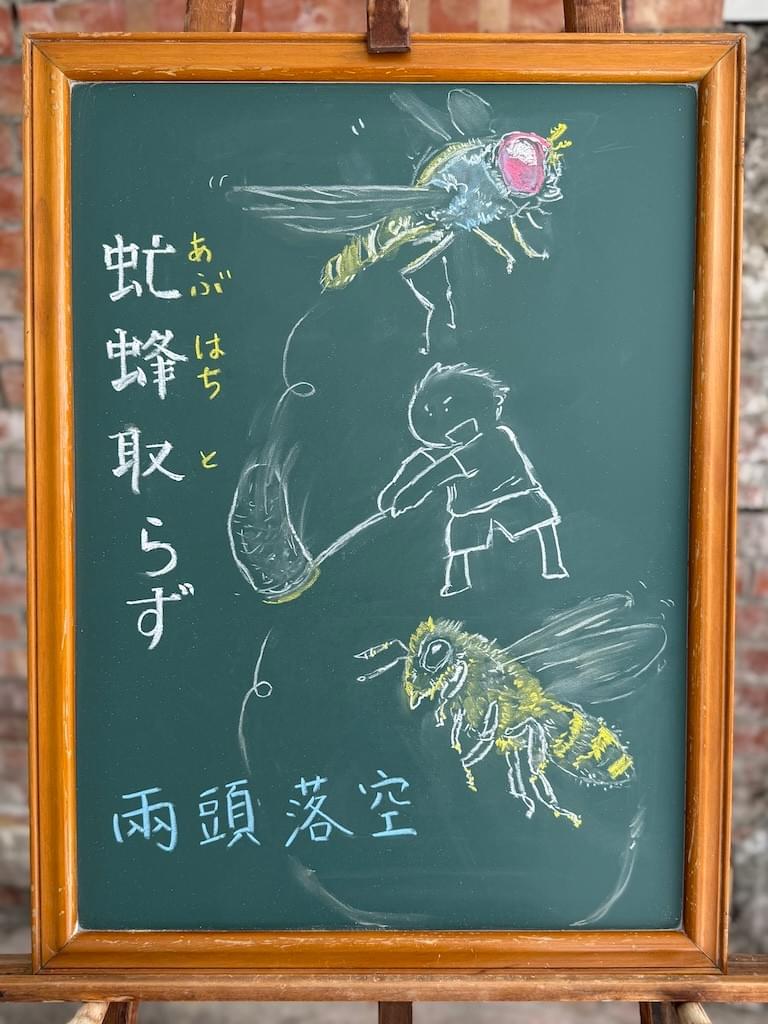 虻蜂取らず
あぶ はち と
兩頭落空